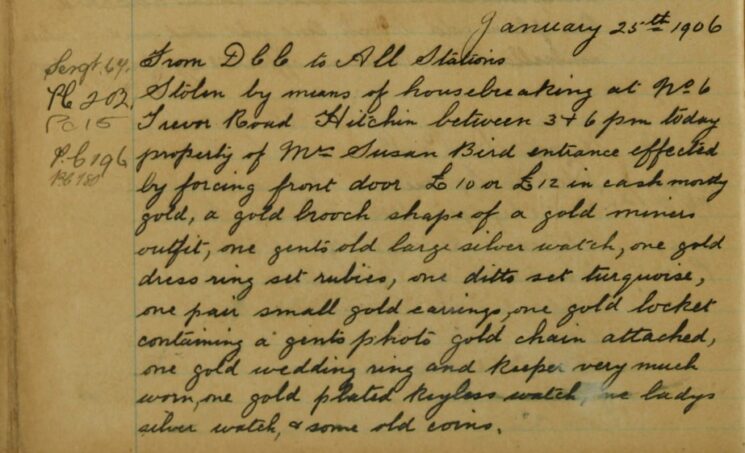 January 25th 1906
Sergt. 64.
From D C C to All Stations
PC 202.
Stolen by means of housebreaking at No 6
PC 15
Trevor Road Hitchin between 3 & 6 pm today
P.C 196
property of Mrs Susan Bird entrance effected
PC 180
by forcing front door £10 or £12 in cash mostly
gold, a gold brooch shape of a gold miners
outfit, one gents old large silver watch, one gold
dress ring set rubies, one ditto set turquoise,
one pair small gold earrings, one gold locket
containing a gents photo gold chain attached,
one gold wedding ring and keeper very much
worn, one gold plated keyless watch, one ladys
silver watch, & some old coins.